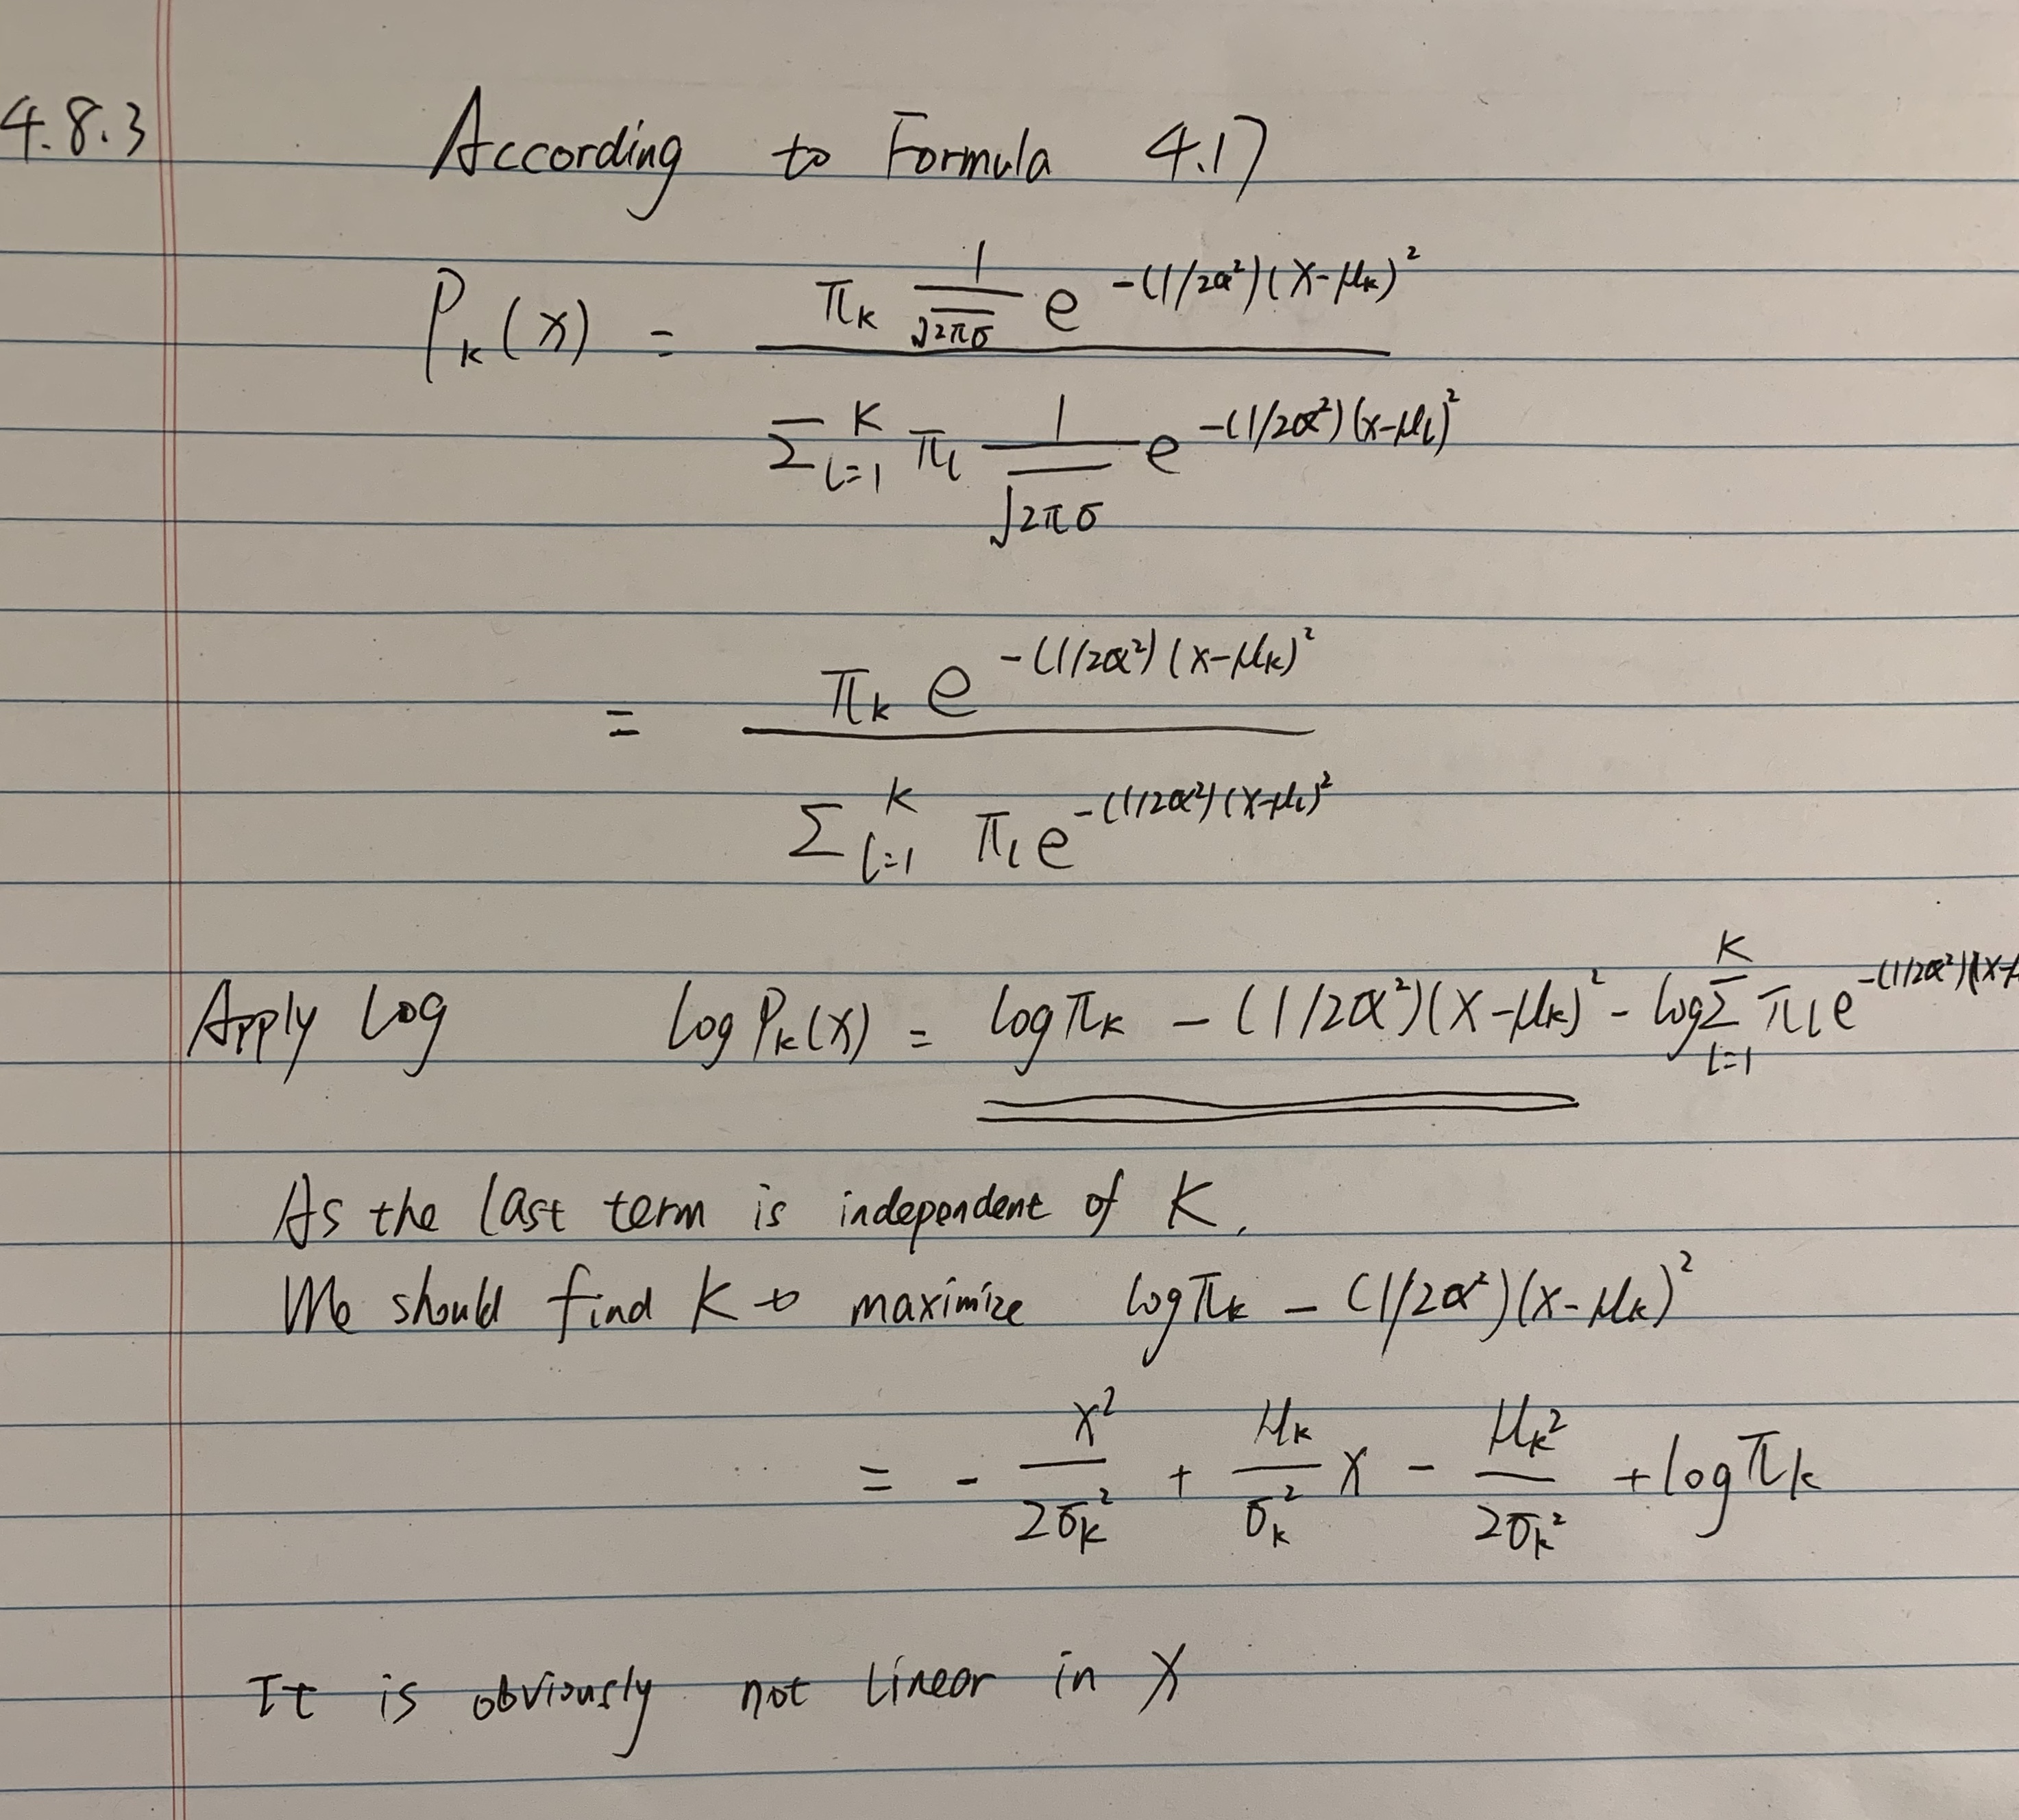 4.8.3 According to Formula 4.17
P_k(x) = \frac{π_k \frac{1}{\sqrt{2πσ}} e^{-(1/2α²)(x-μ_k)²}}{Σ_{l=1}^{K} π_l \frac{1}{\sqrt{2πσ}} e^{-(1/2α²)(x-μ_l)²}}
= \frac{π_k e^{-(1/2α²)(x-μ_k)²}}{Σ_{l=1}^{K} π_l e^{-(1/2α²)(x-μ_l)²}}
Apply log log P_k(x) = log π_k - (1/2α²)(x-μ_k)² - log Σ_{l=1}^{K} π_l e^{-(1/2α²)(x-
As the last term is independent of K,
We should find K to maximize log π_k - (1/2α²)(x-μ_k)²
= - \frac{x²}{2σ_k²} + \frac{μ_k}{σ_k²} x - \frac{μ_k²}{2σ_k²} + log π_k
It is obviously not linear in x